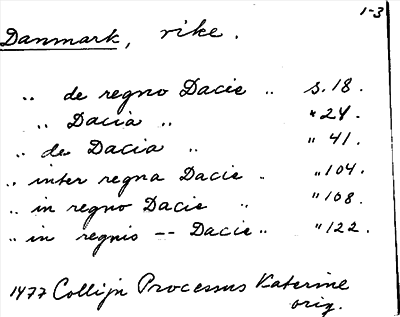 1-3
Danmark, rike.
„ de regno Dacie „ s. 18.
„ Dacia „ " 24.
„ de Dacia „ " 41.
„ inter regna Dacie „ " 104.
„ in regno Dacie „ " 108.
„ in regnis -- Dacie „ " 122.
1477 Collijn Processus Katerine
orig.